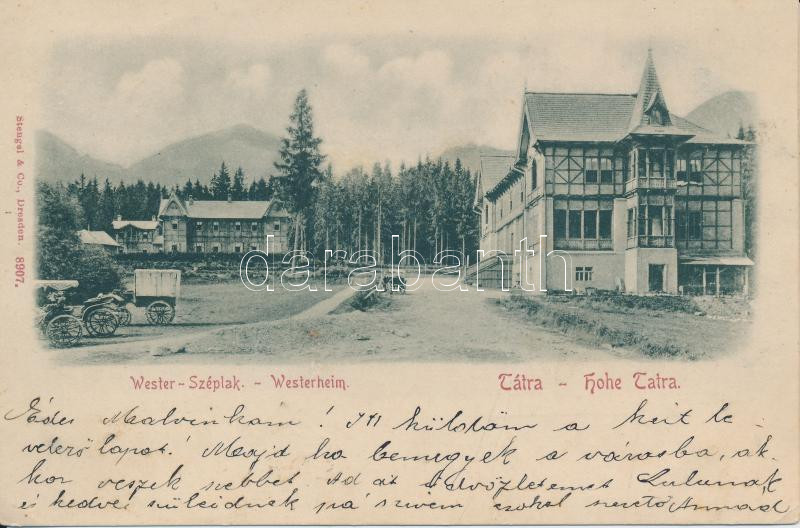 Stengel & Co., Dresden. 8907.
darabanth
Wester-Széplak. - Westerheim.
Tátra - Hohe Tatra.
Édes Malvinkám! Itt küldöm a kért le
velező lapot! Majd ha bemegyek a városba, ak-
kor veszek szebbet. Add át üdvözletemet Lulunak
és kedves szüleidnek rá szívem csókol szerető Annád